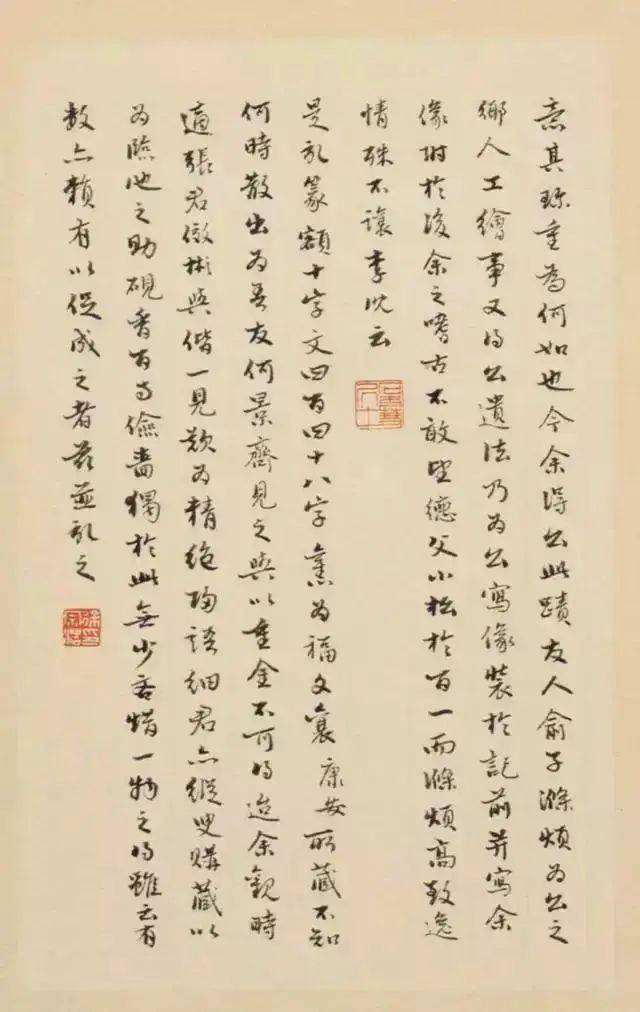 意其珍重為何如也今余得公此蹟友人俞子滌煩為公之
鄉人工繪事又得公遺法乃為公寫像裝於記前并寫余
像坿於後余之嗜古不敢望德父小松於百一而滌煩高致逸
情殊不讓李沈云
是記篆額十字文四百四十八字舊為福文襄康安所藏不知
何時散出為吾友何景齋見之與以重金不可得迨余觀時
適張君儆彬與偕一見歎為精絕歸語細君亦縱臾購藏以
為臨池之助硯香百事儉嗇獨於此無少吝惜一物之得雖云有
數亦賴有以促成之者茲並記之